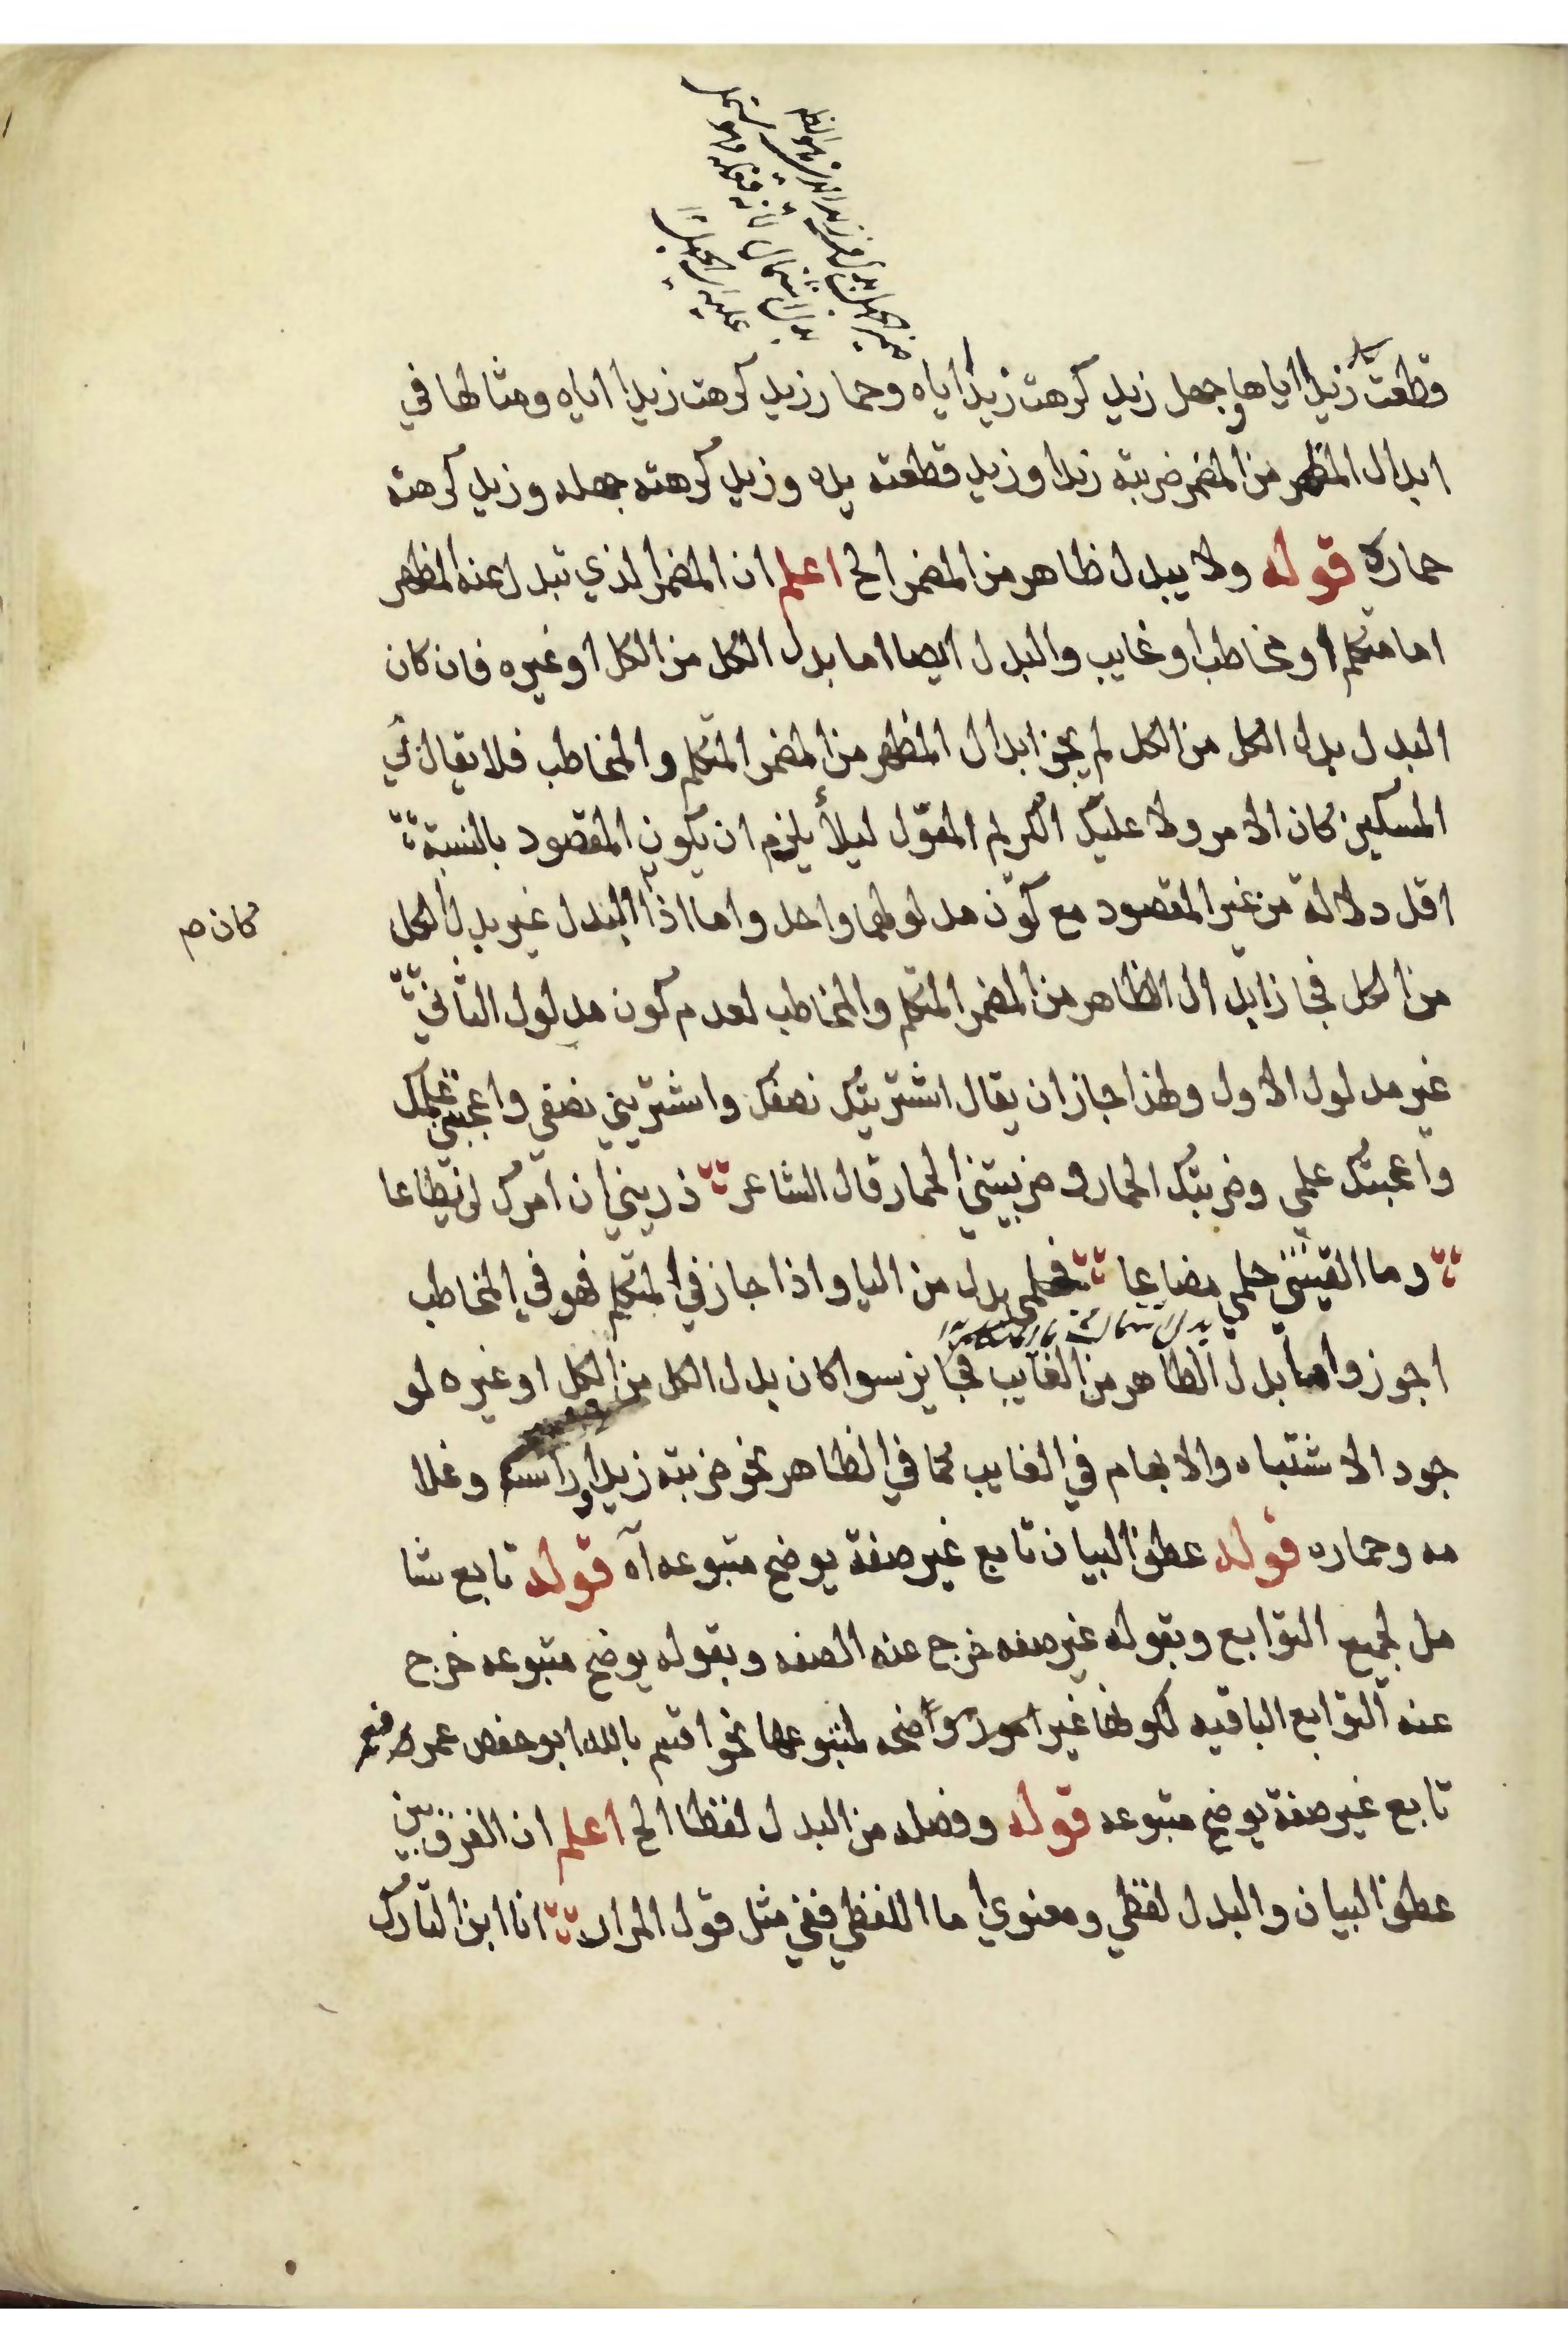 قطعت زيدا اياها وجهل زيد كرهت زيدا اياه وحمار زيد كرهت زيدا اياه ومثالها في
ابدال المظهر من المضمر ضربته زيدا وزيد قطعته يده وزيد كرهته جهله وزيد كرهته
حماره قوله ولا يبدل ظاهر من المضمر الخ اعلم ان المضمر الذي تبدل عنه المظهر
اما متكلم او مخاطب او غايب والبدل ايضا اما بدل الكل من الكل او غيره فان كان
البدل بدل الكل من الكل لم يجز ابدال المظهر من المضمر المتكلم والمخاطب فلا يقال بي
المسكين كان الامر ولا عليك الكريم المعوّل ليلأ يلزم ان يكون المقصود بالنسبة
اقل دلالة من غير المقصود مع كون مدلولهما واحد واما اذا البدل غير بدل الكل
كان صم
من الكل فجاز ابدال الظاهر من المضمر المتكلم والمخاطب لعدم كون مدلول الثاني
غير مدلول الاول ولهذا جاز ان يقال اشتريتك نصفك واشتريتني نصفي واعجبتني علمك
واعجبتك علمي وضربتك الحمار وضربيتني الحمار قال الشاعر ذريني ان امرك لن يطاعا
وما القيتني حلمي مضاعا فحلمي بدل من اليا واذا جاز في المتكلم فهو في المخاطب
اجوز واما بدل الظاهر من الغايب فجايز سوا كان بدل الكل من الكل او غيره لو
جود الاشتباه والابهام في الغايب كما في الظاهر نحو ضربته زيدا وراسه وغلا
مه وحماره قوله عطف البيان تابع غير صفة يوضح متبوعه آه قوله تابع شا
مل لجميع التوابع وبقوله غير صفه خرج عنه الصفه وبقوله يوضح متبوعه خرج
عنه التوابع الباقيه لكونها غير امور واضحه لمتبوعها نحو اقسم بالله ابو حفص عمر
تابع غير صفة يوضح متبوعه قوله وفصله من البدل لفظا الخ اعلم ان الفرق بين
عطف البيان والبدل لفظي ومعنوي اما اللفظي ففي مثل قول المرار انا ابن التارك